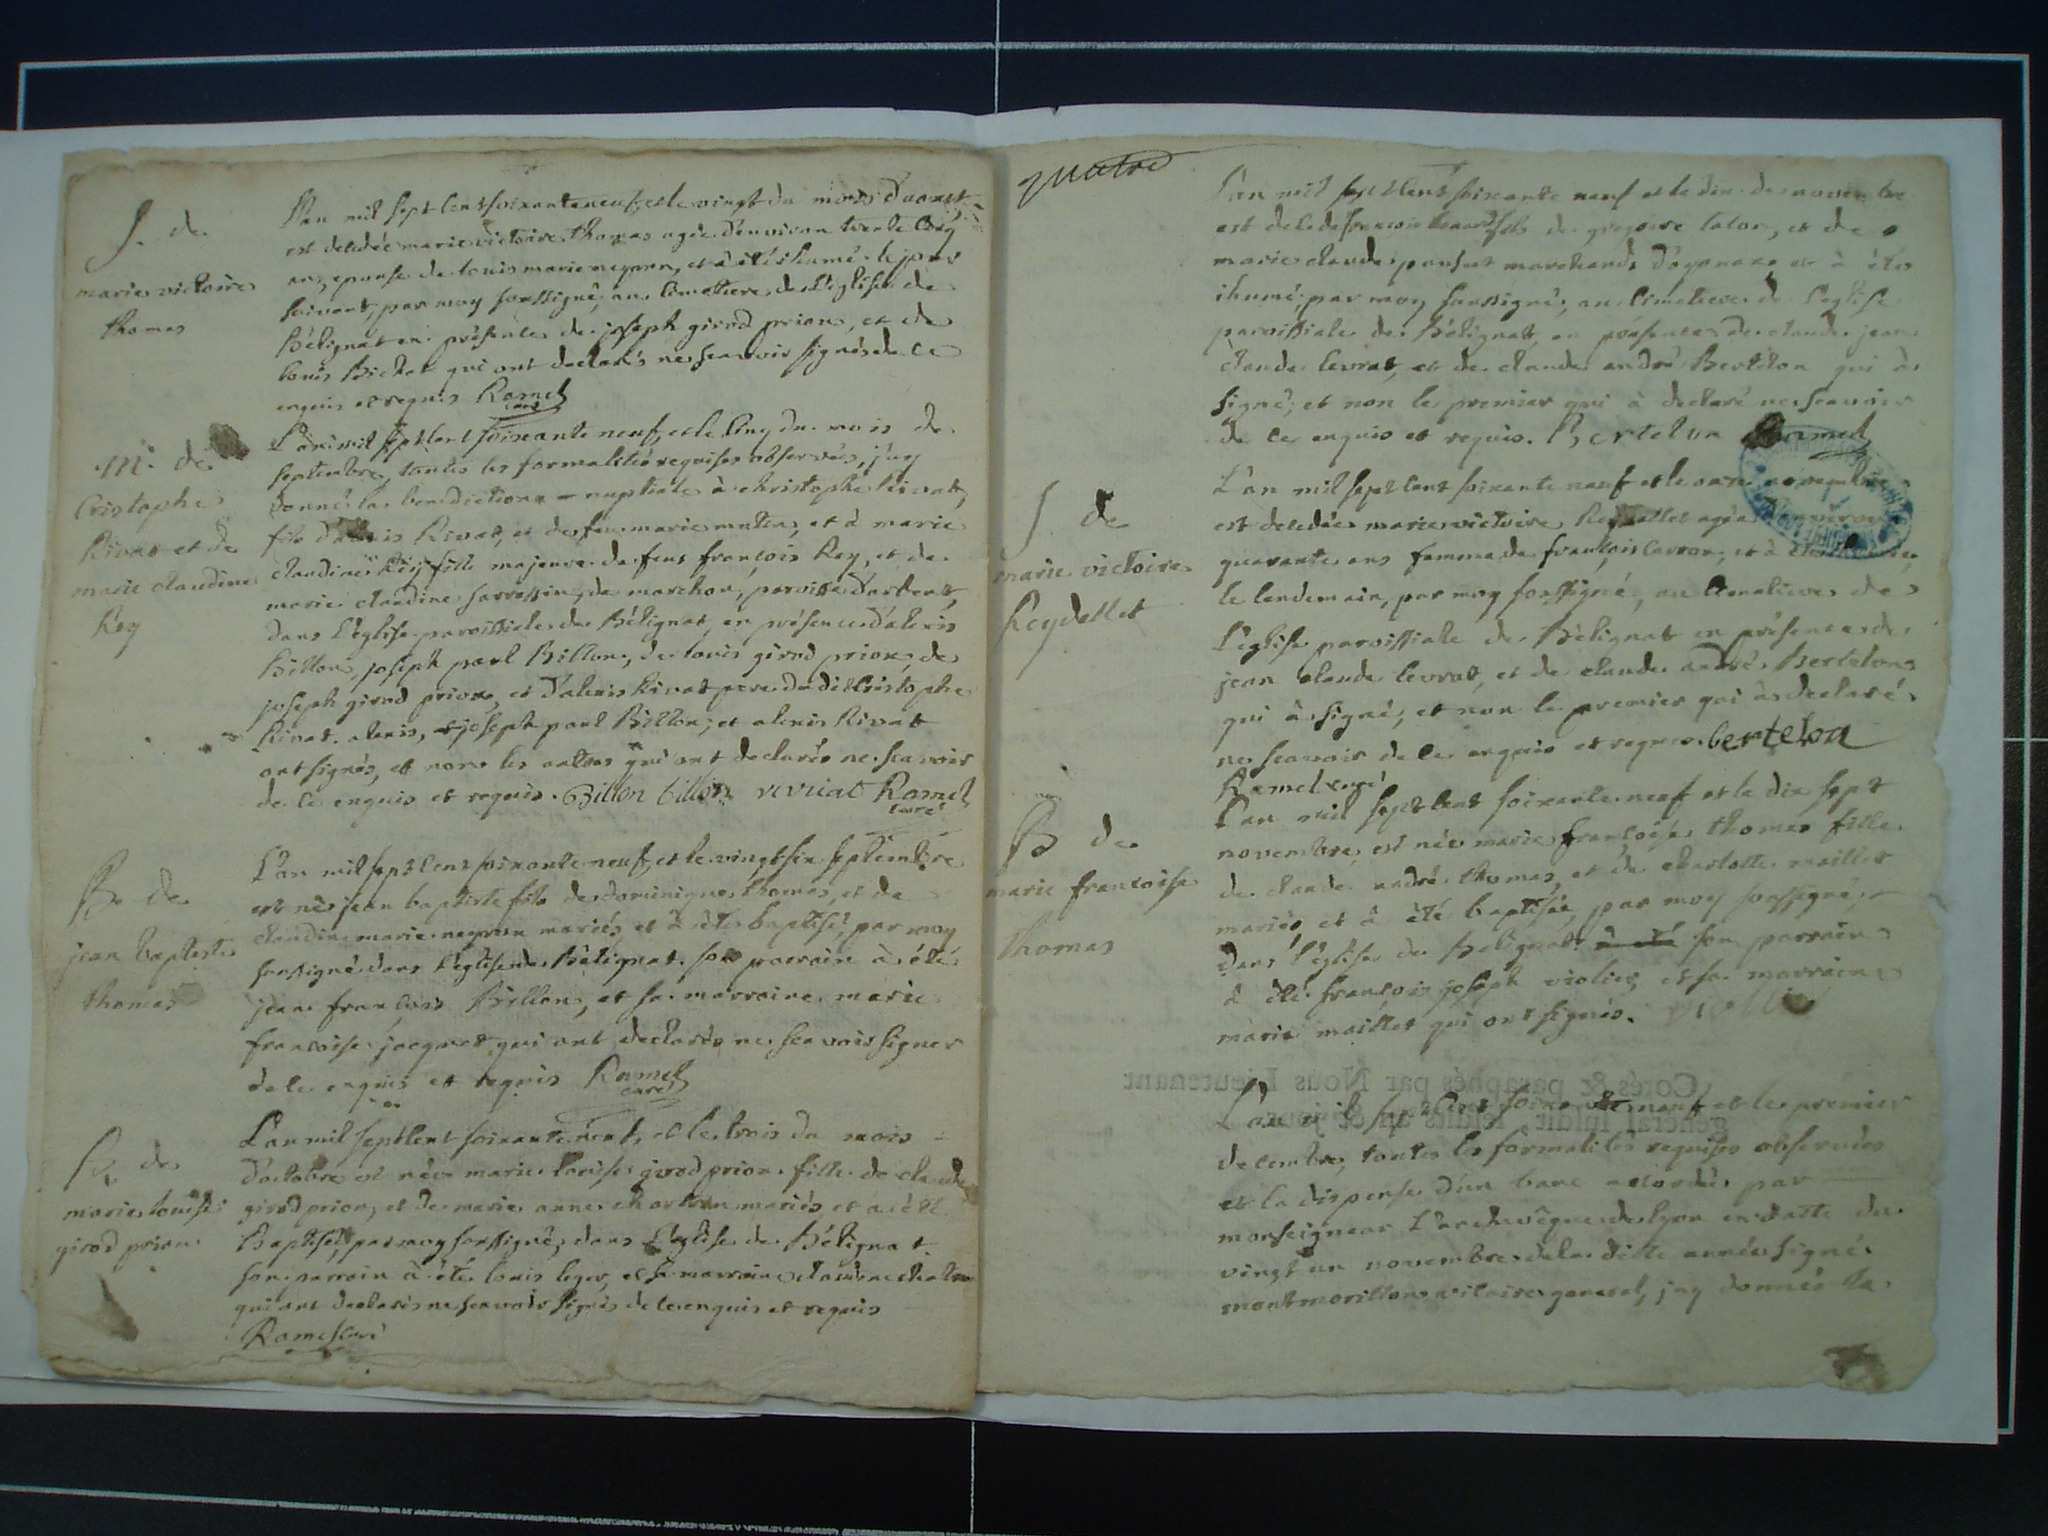 S. de
marie victoire
thomas
L'an mil sept cent soixante neuf, et le vingt du mois d'aoust
est decedée marie victoire thomas agée d'environ trente cinq
ans, epouse de louis marie neyron, et à été ihumé le jour
suivant, par moy soussigné, au cimetiere de l'eglise de
Bélignat en présence de joseph girod prion, et de
louis Bichat qui ont declarés ne scavoir signés de ce
enquis et requis Ramel
curé
M. de
Cristophe
Rivat et de
marie claudine
Rey
L'an mil sept cent soixante neuf, et le cinq du mois de
septembre, toutes les formalités requises observées, j'ay
donné la benediction nuptiale à christophe Rivat,
fils d'alexis Rivat, et de feu marie mutin, et à marie
claudine Rey fille majeure de feus françois Rey, et de
marie claudine sarrassin, de marchon, paroisse d'arbent,
dans l'eglise paroissiale de Bélignat, en présence d'alexis
Billon, joseph paul Billon, de louis girod prion, de
joseph girod prion, et d'alexis Rivat pere du dit Cristophe
Rivat. alexis, et joseph paul Billon, et alexis Rivat
ont signés, et non les autres qui ont declarés ne scavoir
de ce enquis et requis. Billon billon Ramel
curé
B. de
jean baptiste
thomas
L'an mil sept cent soixante neuf, et le vingt six septembre
est né jean baptiste fils de dominique thomas, et de
claudine marie neyron mariés et à été baptisé, par moy
soussigné dans l'eglise de Bélignat. son parrain à été
jean françois Billon, et sa marraine marie
francoise jacquet, qui ont declarés ne scavoir signer
de ce enquis et requis Ramel
curé
B. de
marie louise
girod prion
L'an mil sept cent soixante neuf, et le trois du mois
d'octobre est née marie louise girod prion fille de claude
girod prion, et de marie anne mariés et a été
Baptisée, par moy soussigné, dans l'Eglise de Béligna t.
son parrain à été louis leger, et sa marraine
qui ont declarés ne scavoir signés de ce enquis et requis
Ramel curé
quatre
L'an mil sept cent soixante neuf et le dix de novembre
est decedé francois fils de gregoire tacon, et de
marie claude marchands d'oyonnax et à été
ihumé, par moy soussigné, au cimetiere de l'eglise
paroissiale de Bélignat, en présence de claude jean
claude levrat, et de claude andré Bertelon qui à
signé, et non le premier qui à declaré ne scavoir
de ce enquis et requis. Bertelon Ramel
S de
marie victoire
Reydellet
L'an mil sept cent soixante neuf et le onze novembre
est decedée marie victoire Reydellet agée d'environ
quarante ans femme de françois carron, et à été
le lendemain, par moy soussigné, au cimetiere de
l'eglise paroissiale de Bélignat en présence de
jean claude levrat, et de claude andré Bertelon
qui à signé, et non le premier qui à declaré
ne scavoir de ce enquis et requis. bertelon
Ramel curé
B de
marie francoise
thomas
L'an mil sept cent soixante neuf et le dix sept
novembre, est née marie françoise thomas fille
de claude andré thomas, et de charlotte maillet
mariés, et à été baptisée, par moy soussigné,
dans l'église de Bélignat à été son parrain
à été francois joseph violier, et sa marraine
marie maillet qui ont signés.
Cotés & paraphés par Nous Lieutenant
L'an mil sept cent soixante neuf et le premier
decembre, toutes les formalités requises observées
et la dispense d'un banc accordée par
monseigneur L'archevêque de lyon en datte du
vingt un novembre de la ditte année signé
montmorillon vicaire general, j'ay donnée la